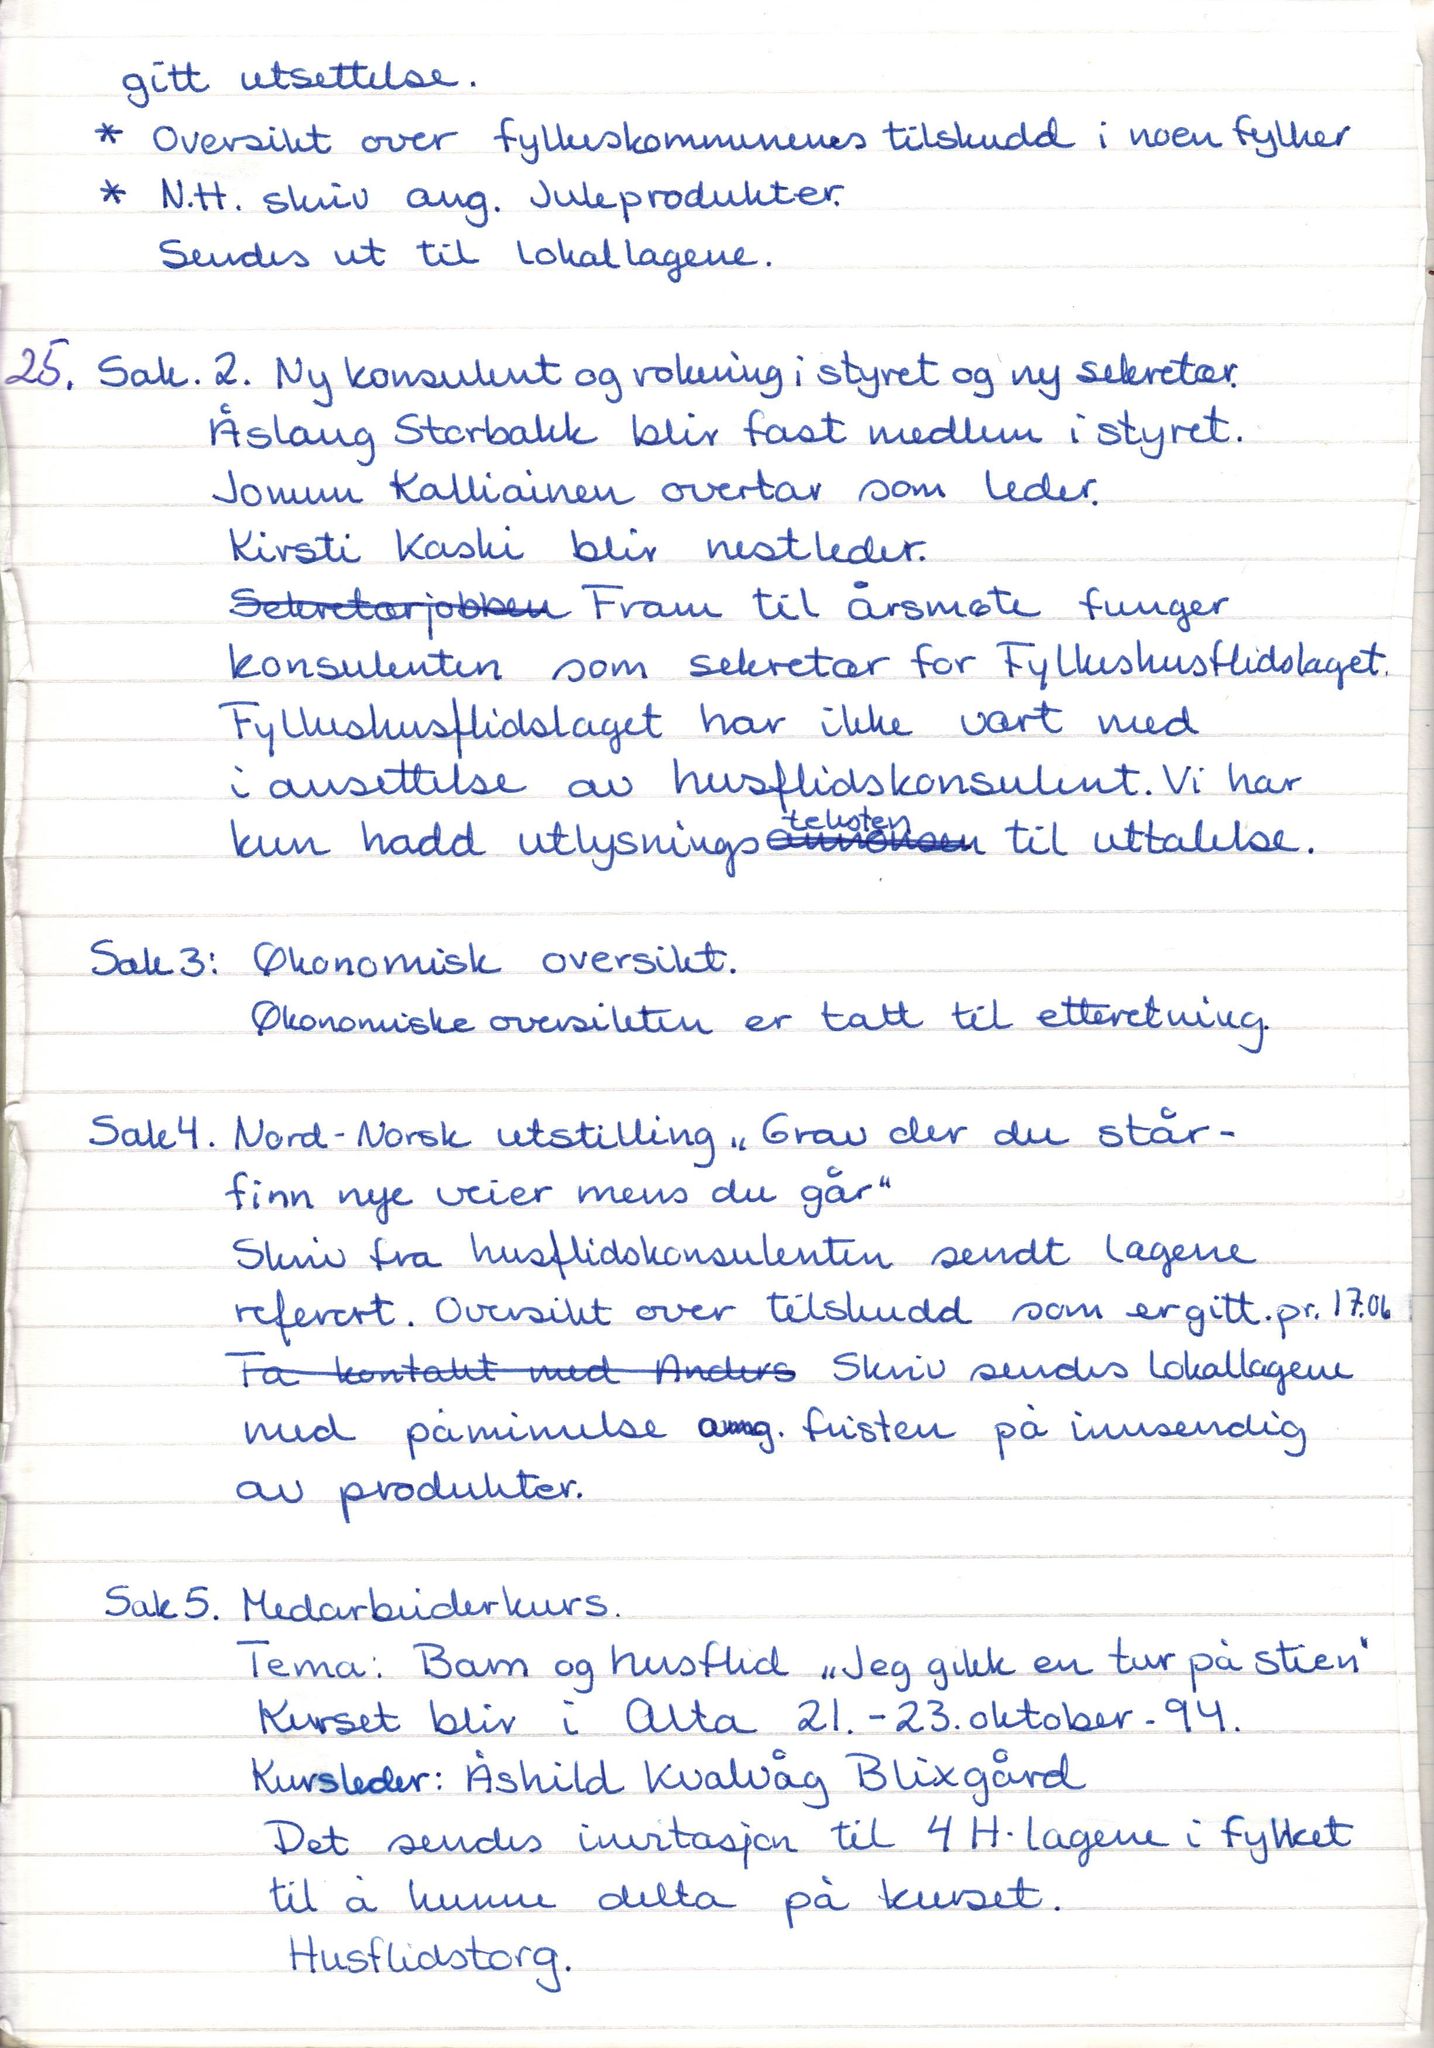 gitt utsettelse.
* Oversikt over fylkeskommunenes tilskudd i noen fylker
* N.H. skriv ang. Juleprodukter.
Sendes ut til lokallagene.
25. Sak. 2. Ny konsulent og rokering i styret og ny sekretær.
Åslaug Storbakk blir fast medlem i styret.
Jorunn Kalliainen overtar som leder.
Kirsti Kaski blir nestleder.
Sekretærjobben Fram til årsmøte funger
konsulenten som sekretær for Fylkeshusflidslaget.
Fylkeshusflidslaget har ikke vært med
i ansettelse av husflidskonsulent. Vi har
teksten
kun hadd utlysningsannonsen til uttalelse.
Sak 3: Økonomisk oversikt.
Økonomiske oversikten er tatt til etteretning.
Sak 4. Nord-Norsk utstilling „Grav der du står-
finn nye veier mens du går"
Skriv fra husflidskonsulenten sendt lagene
referert. Oversikt over tilskudd som er gitt. pr. 17.06
Ta kontakt med Anders Skriv sendes lokallagene
med påminnelse ang. fristen på innsendig
av produkter.
Sak 5. Medarbeiderkurs.
Tema: Barn og husflid „Jeg gikk en tur på stien"
Kurset blir i Alta 21. - 23. oktober - 94.
Kursleder: Åshild Kvalvåg Blixgård
Det sendes invitasjon til 4 H-lagene i fylket
til å kunne delta på kurset.
Husflidstorg.